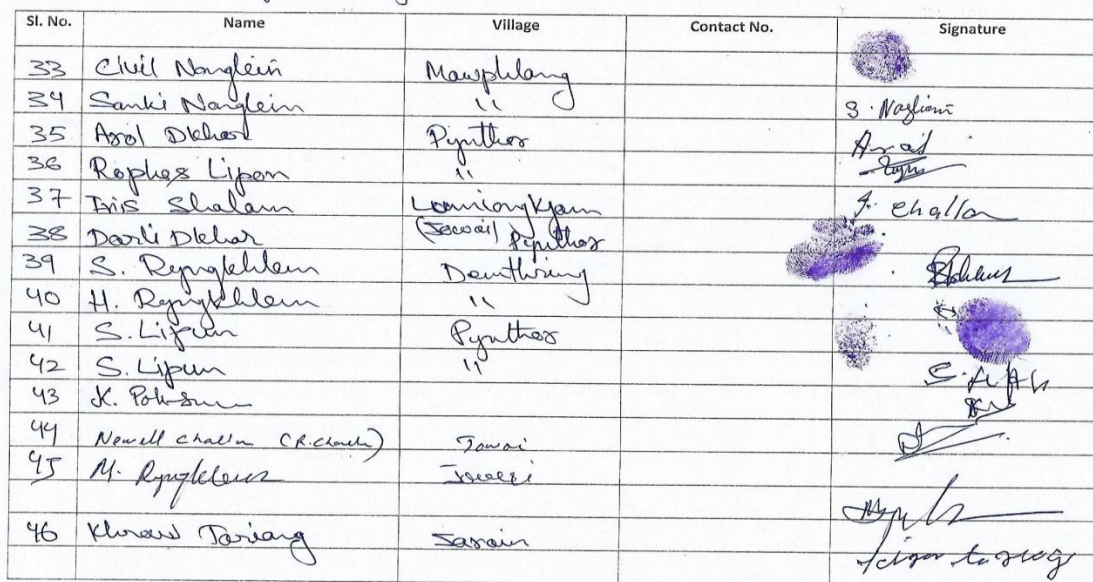 Sl. No. Name Village Contact No. Signature
33 Civil Nonglein Mawphlang
34 Sanki Nonglein " S. Noglein
35 Asol Dkhar Pynthor
36 Rophes Lipon "
37 Iris Shalam Loomiongkjam I. Challam
38 Darli Dkhar (Jowai) Pynthor
39 S. Ryngkhlem Demthring
40 H. Ryngkhlem "
41 S. Lipun Pynthor
42 S. Lipun "
43 K.
44 Newell Challam (R. Challam) Jowai
45 M. Ryngkhlem Jowai
46 Khraw Tariang Saroin